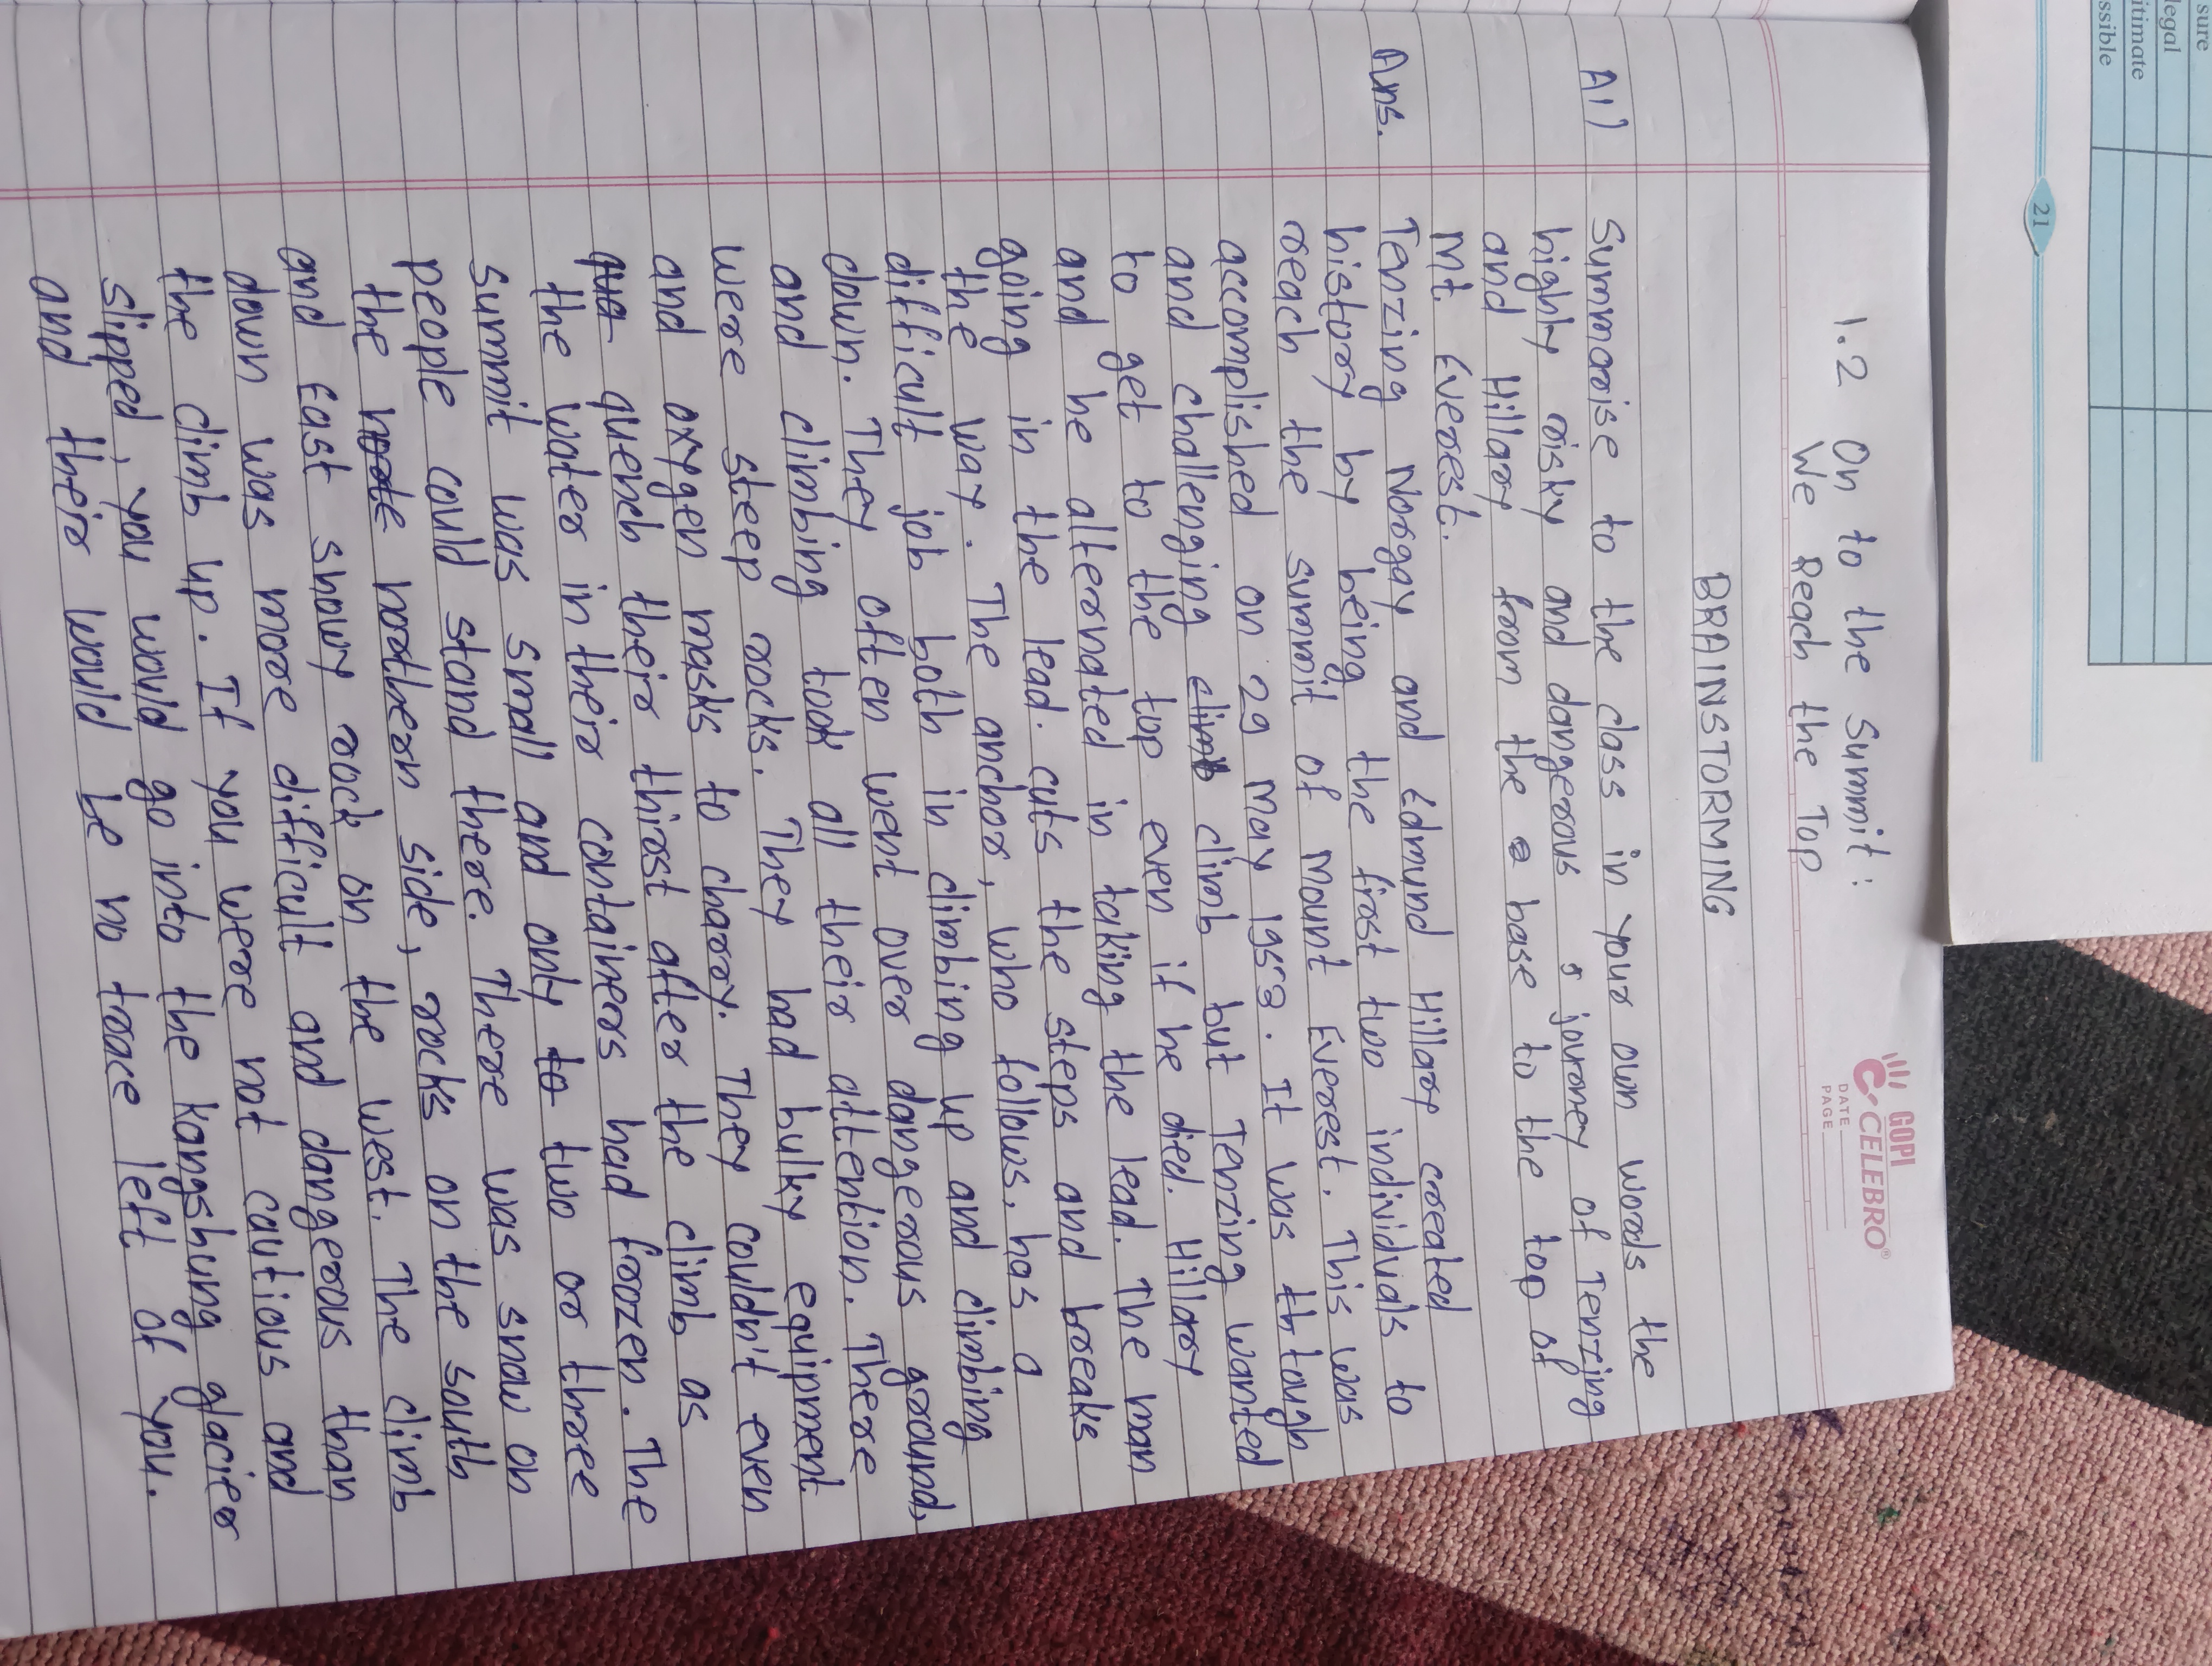 sure
legal
itimate
ssible
21
GOPI
CELEBRO®
DATE
PAGE
1.2 On to the Summit:
We Reach the Top
BRAINSTORMING
A1) Summarise to the class in your own words the
highly risky and dangerous journey of Tenzing
and Hillary from the base to the top of
Mt. Everest.
Ans. Tenzing Norgay and Edmund Hillary created
history by being the first two individuals to
reach the summit of Mount Everest. This was
accomplished on 29 May 1953. It was tough
and challenging climb climb but Tenzing wanted
to get to the top even if he died. Hillary
and he alternated in taking the lead. The man
going in the lead. cuts the steps and breaks
the way. The anchor, who follows, has a
difficult job both in climbing up and climbing
down. They often went over dangerous ground,
and climbing took all their attention. There
were steep rocks. They had bulky equipment
and oxygen masks to charry. They couldn't even
quench their thirst after the climb as
the water in their containers had froozen. The
summit was small and only to two or three
people could stand there. There was snow on
the northern side, rocks on the south
and East snowy rock on the west. The climb
down was more difficult and dangerous than
the climb up. If you were not cautious and
slipped, you would go into the Kangshung glacier
and their would be no trace left of you.